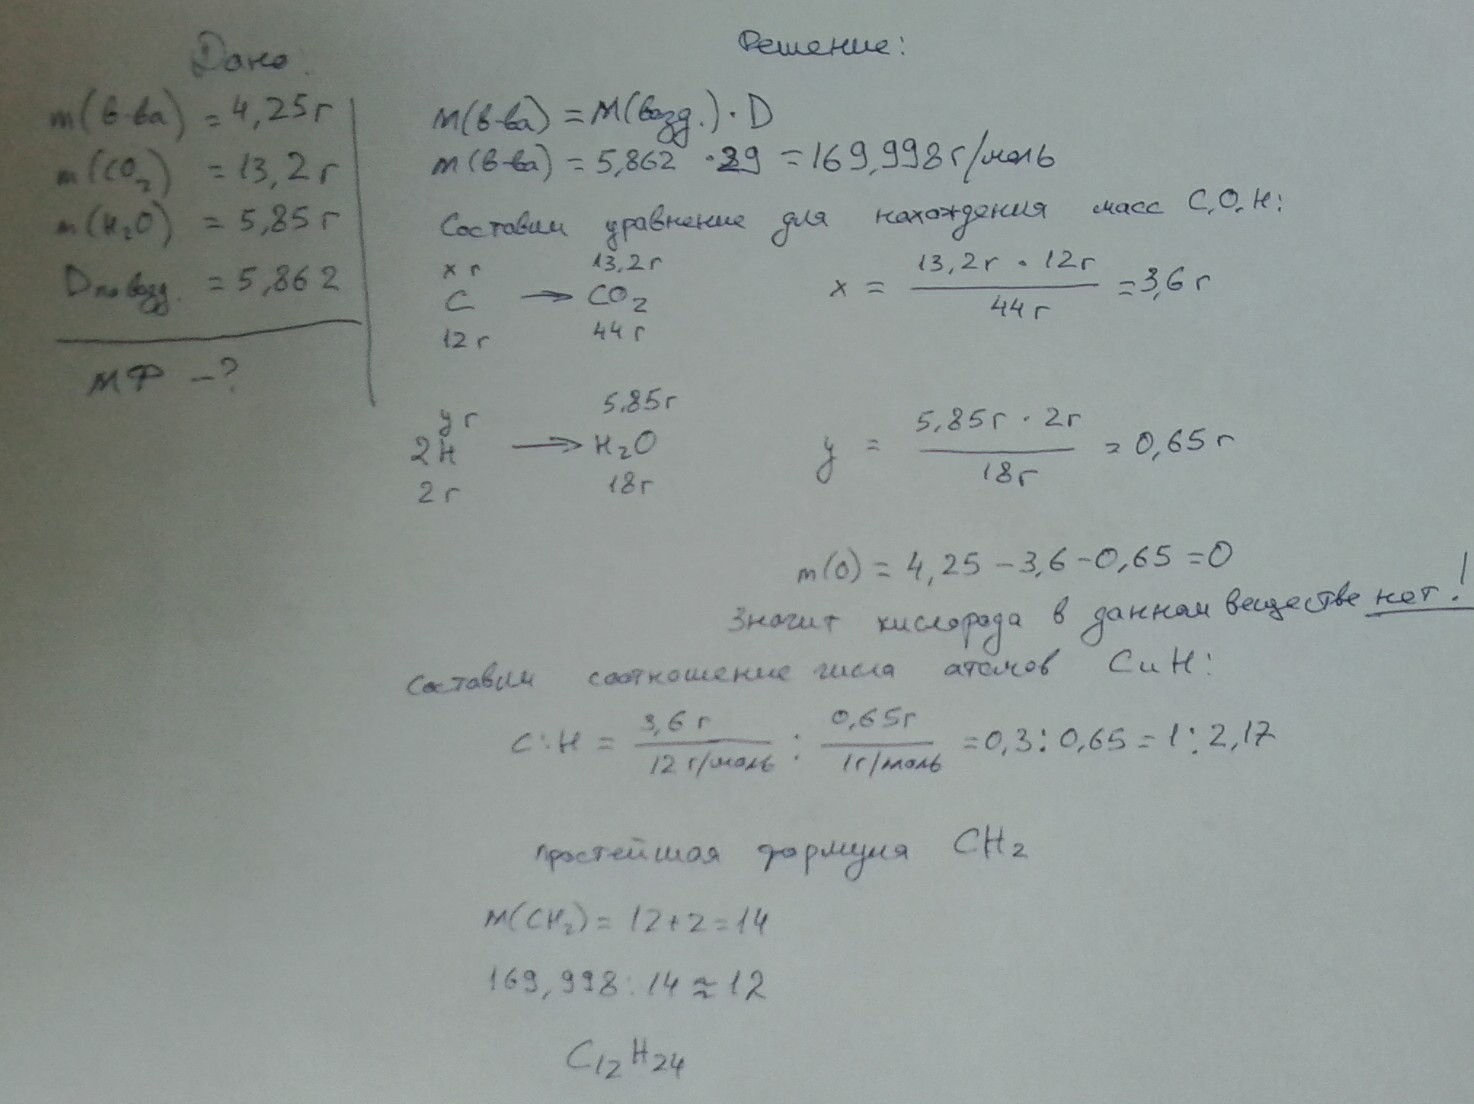 Дано:
m(в-ва) = 4,25г
m(CO₂) = 13,2г
m(H₂O) = 5,85г
D по возд. = 5,862
МФ – ?
Решение:
M(в-ва) = M(возд.) · D
M(в-ва) = 5,862 · 29 = 169,998 г/моль
Составим уравнение для нахождения масс C, O, H:
x г 13,2г
C → CO₂
12 г 44 г
x = 13,2г · 12г / 44 г = 3,6 г
y г 5,85г
2H → H₂O
2 г 18г
y = 5,85г · 2г / 18г = 0,65 г
m(O) = 4,25 – 3,6 – 0,65 = 0
Значит кислорода в данном веществе нет!
Составим соотношение числа атомов C и H:
C:H = 3,6 г / 12 г/моль : 0,65г / 1г/моль = 0,3 : 0,65 = 1 : 2,17
простейшая формула CH₂
M(CH₂) = 12+2 = 14
169,998 : 14 ≈ 12
C₁₂H₂₄